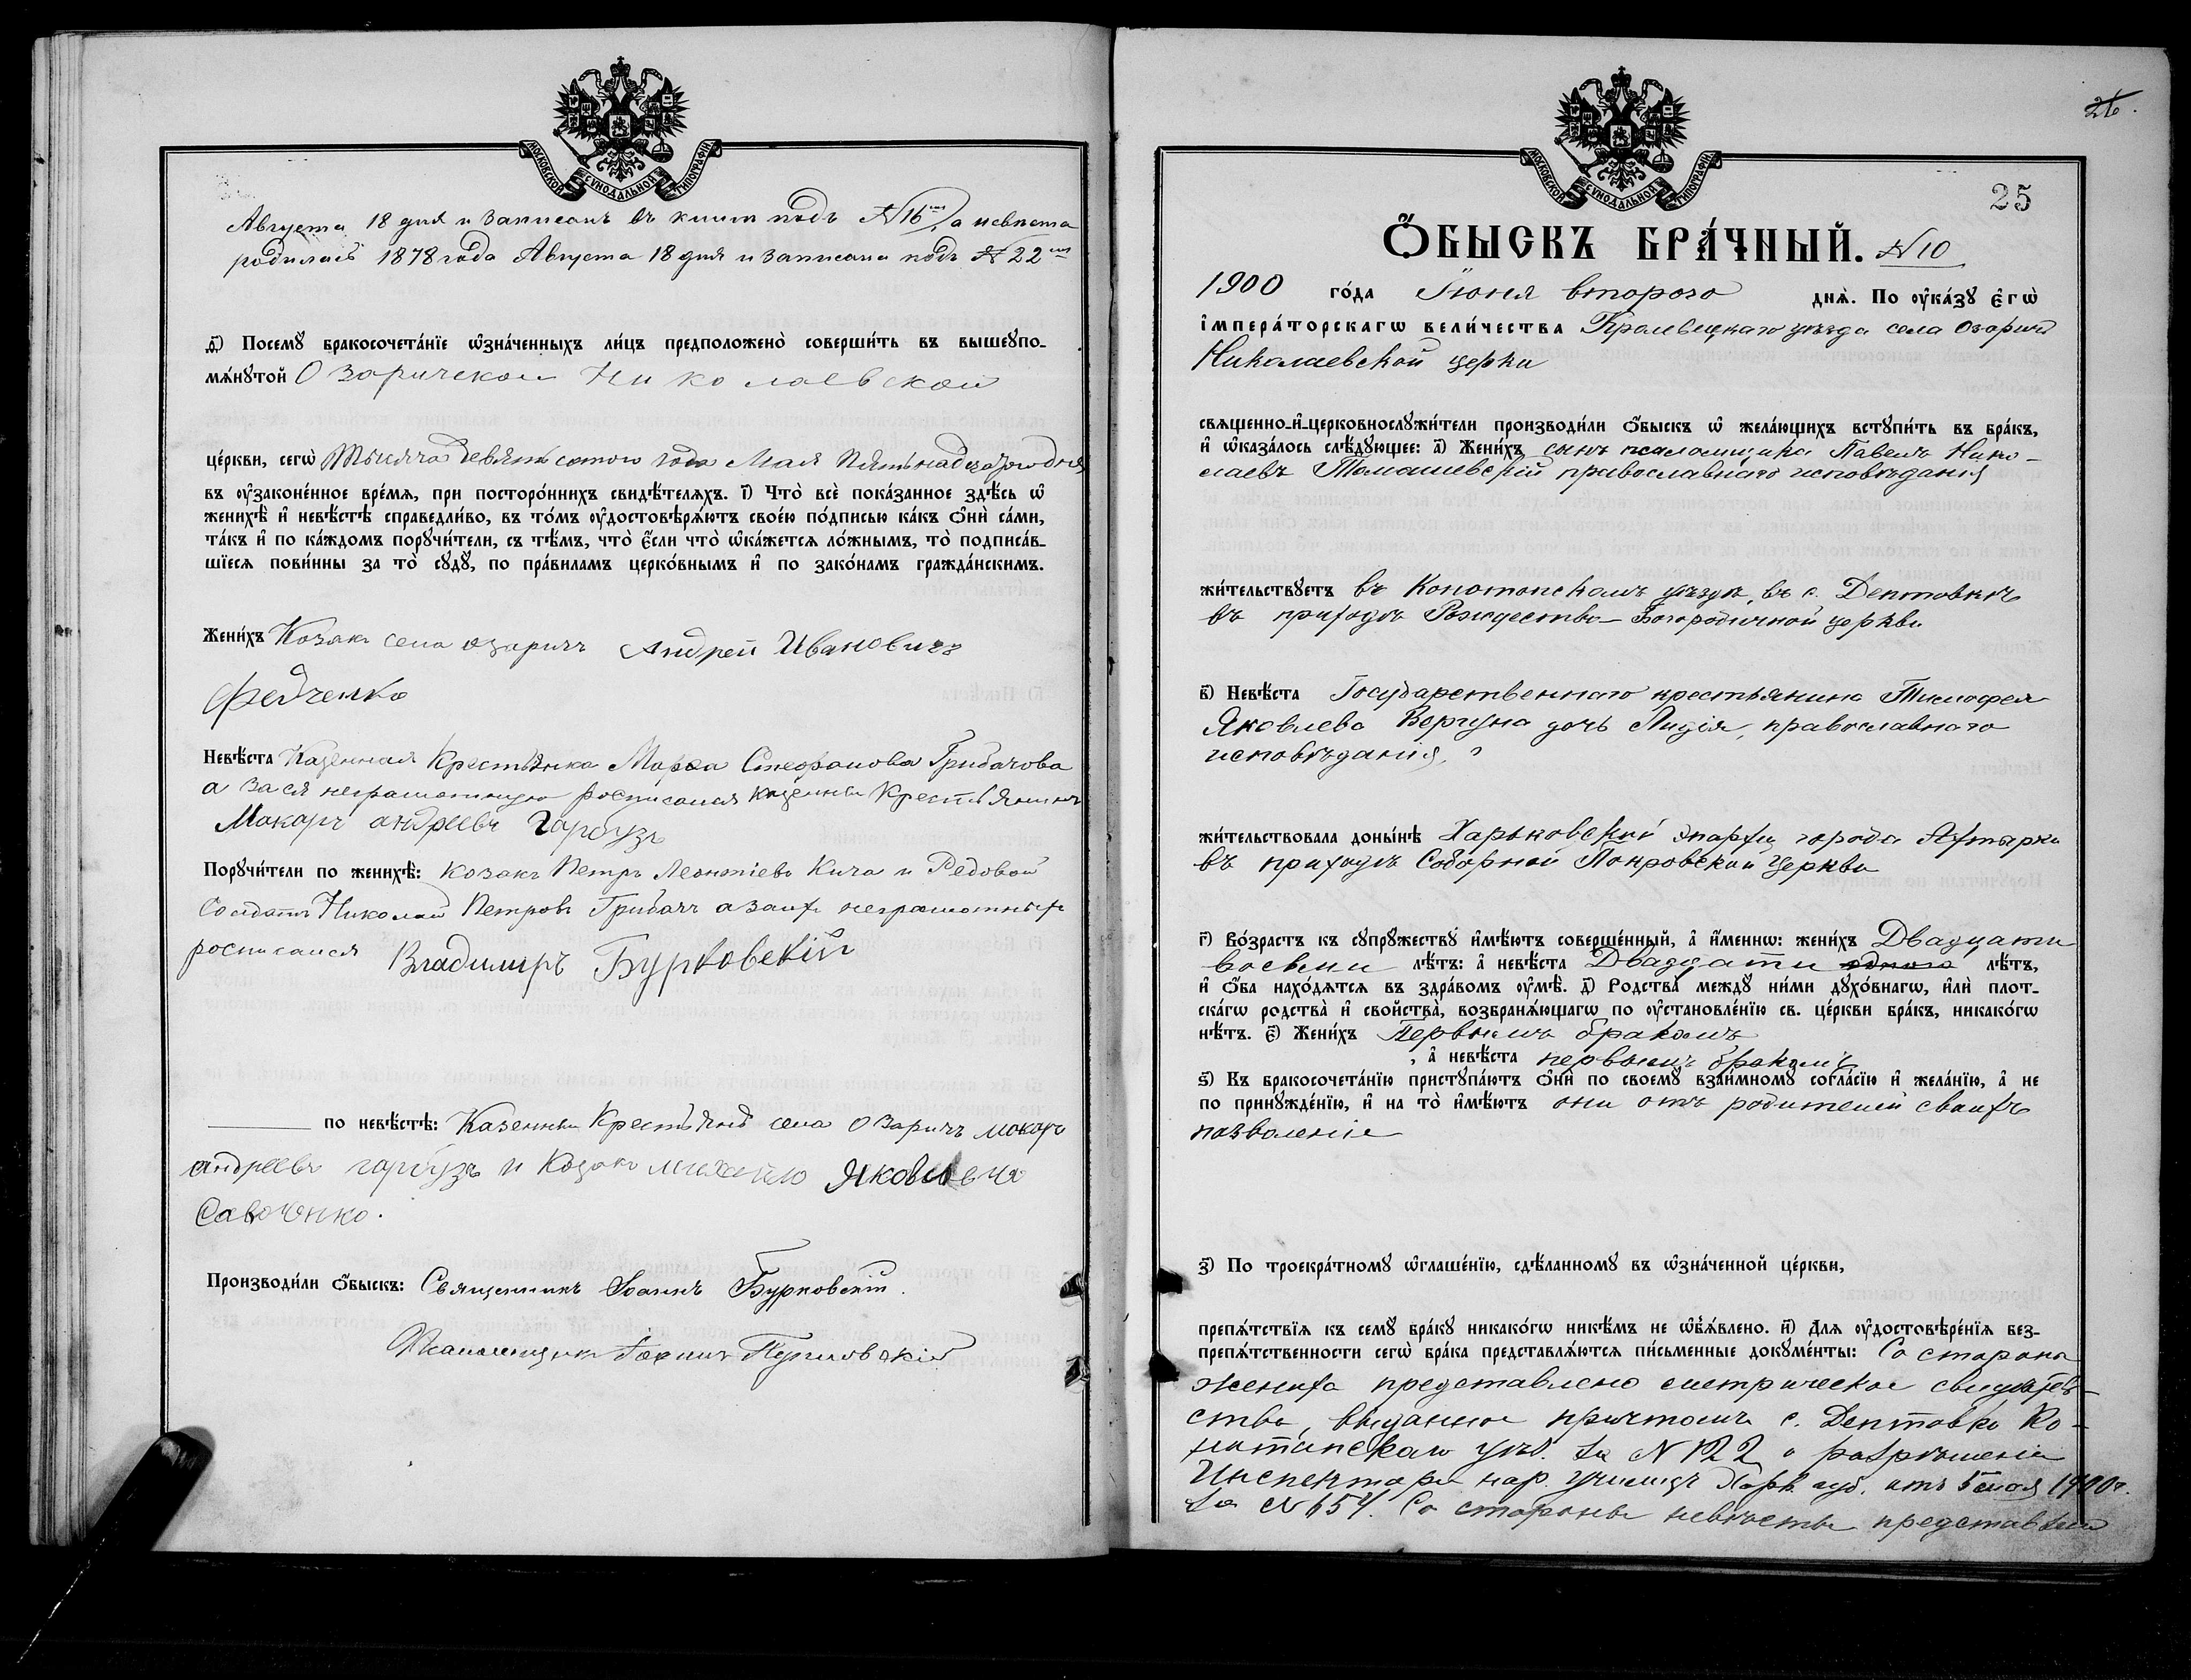 МОСКОВСКОЙ СУНОДАЛЬНОЙ ТИПОГРАФІИ
Августа 18 дня и записанъ въ книги подъ №16мъ, а невѣста
родилась 1878 года Августа 18 дня и записана подъ №22мъ
д҃) Посемꙋ бракосочета́нїе ѡ҆зна́ченныхъ ли́цъ предположено̀ соверши́ть въ вышеꙋпо-
мѧ́нꙋтой Озаричской Николаевской
це́ркви, сегѡ̀ Тысяча девятьсотого года Мая Пятьнадцатого дня
въ ᲂу҆законе́нное вре́мѧ, при посторо́ннихъ свидѣ́телѧхъ. і҃) Что̀ всѐ пока́занное здѣ́сь ѡ҆
женихѣ̀ и҆ невѣ́стѣ справедли́во, въ то́мъ ᲂу҆достовѣрѧ́ютъ свое́ю по́дписью ка́къ ѻ҆нѝ са́ми,
та́къ и҆ по ка́ждомъ порꙋчи́тели, съ тѣ́мъ, что̀ є҆́сли что̀ ѡ҆ка́жетсѧ ло́жнымъ, то̀ подписа́в-
шїесѧ пови́нны за то̀ сꙋдꙋ̀, по пра́виламъ церко́внымъ и҆ по зако́намъ гражда́нскимъ.
Жени́хъ Козакъ села озаричъ Андрей Ивановичъ
Федченко
Невѣ́ста Казенная Крестьянка Марѳа Стефанова Грибачова
а за ея неграмотную росписался казенны Крестьянинъ
Макаръ андреевъ гарбузъ
Порꙋчи́тели по женихѣ̀: козакъ Петръ Леонтіевъ Кича и Редовой
Солдатъ Николай Петровъ Грибачъ а за ихъ неграмотныхъ
росписался Владимиръ Бурковскій
по невѣ́стѣ: Казенны Крестьянъ села озаричъ макаръ
андреевъ гарбузъ и Козакъ михайло Яковлева
Савоченко.
Производи́ли ѻ҆́быскъ: Священникъ Іоаннъ Бурковскій.
Псаломщикъ
26.
МОСКОВСКОЙ СУНОДАЛЬНОЙ ТИПОГРАФІИ
25
Ѻ҆́БЫСКЪ БРА́ЧНЫЙ. №10
1900 го́да Іюня второго днѧ̀. По ᲂу҆ка́зꙋ є҆гѡ̀
і҆мпера́торскагѡ вели́чества Кролевецкаго уѣзда села Озаричъ
Николаевской церкви
свѧщенно-и҆-церковнослꙋжи́тели производи́ли ѻ҆́быскъ ѡ҆ жела́ющихъ встꙋпи́ть въ бра́къ,
и҆ ѡ҆каза́лось слѣ́дꙋющее: а҃) Жени́хъ сынъ псаломщика Павелъ Нико-
лаевъ Томашевскій православнаго исповѣданія
жи́тельствꙋетъ въ Конотопскомъ уѣздѣ, въ с. Дептовкѣ
въ приходѣ Рождество-Богородичной церкви
в҃) Невѣ́ста Государственнаго крестьянина Тимофея
Яковлева Коргуна дочь Лидія, православнаго
исповѣданія,
жи́тельствовала доны́нѣ Харьковской Епархіи города Ахтырки
въ приходѣ Соборной Покровской Церкви
г҃) Во́зрастъ къ сꙋпрꙋ́жествꙋ и҆мѣ́ютъ соверше́нный, а҆ и҆́меннѡ: жени́хъ Двадцати
восьми лѣ́тъ: а҆ невѣ́ста Двадцати одного лѣ́тъ,
и҆ ѻ҆́ба нахо́дѧтсѧ въ здра́вомъ ᲂу҆мѣ̀. д҃) Родства̀ междꙋ̀ ни́ми дꙋхо́внагѡ, и҆лѝ плот-
ска́гѡ родства̀ и҆ свойства̀, возбранѧ́ющагѡ по ᲂу҆становле́нїю св. це́ркви бра́къ, никако́гѡ
нѣ́тъ. є҃) Жени́хъ Первымъ бракомъ
, а҆ невѣ́ста первымъ бракомъ
ѕ҃) Къ бракосочета́нїю пристꙋпа́ютъ ѻ҆нѝ по своемꙋ̀ взаи́мномꙋ согла́сїю и҆ жела́нїю, а҆ не
по принꙋжде́нїю, и҆ на то̀ и҆мѣ́ютъ они отъ родителей своихъ
позволеніе
з҃) По троекра́тномꙋ ѡ҆глаше́нїю, сдѣ́ланномꙋ въ ѡ҆зна́ченной це́ркви,
препѧ́тствїѧ къ семꙋ̀ бра́кꙋ никако́гѡ никѣ́мъ не ѡ҆б̾ѧ́влено. и҃) Длѧ ᲂу҆достовѣре́нїѧ без-
препѧ́тственности сегѡ̀ бра́ка представлѧ́ютсѧ пи́сьменные докꙋме́нты: Со стороны
жениха представлено метрическое свидѣтель-
ство, выданное причтомъ с. Дептовки Ко-
нотопскаго уѣз. за №122 и разрѣшеніе
Инспектора нар. училищъ Харьк. губ. отъ 5 мая 1900 г.
за №654. Со стороны невѣсты представлено